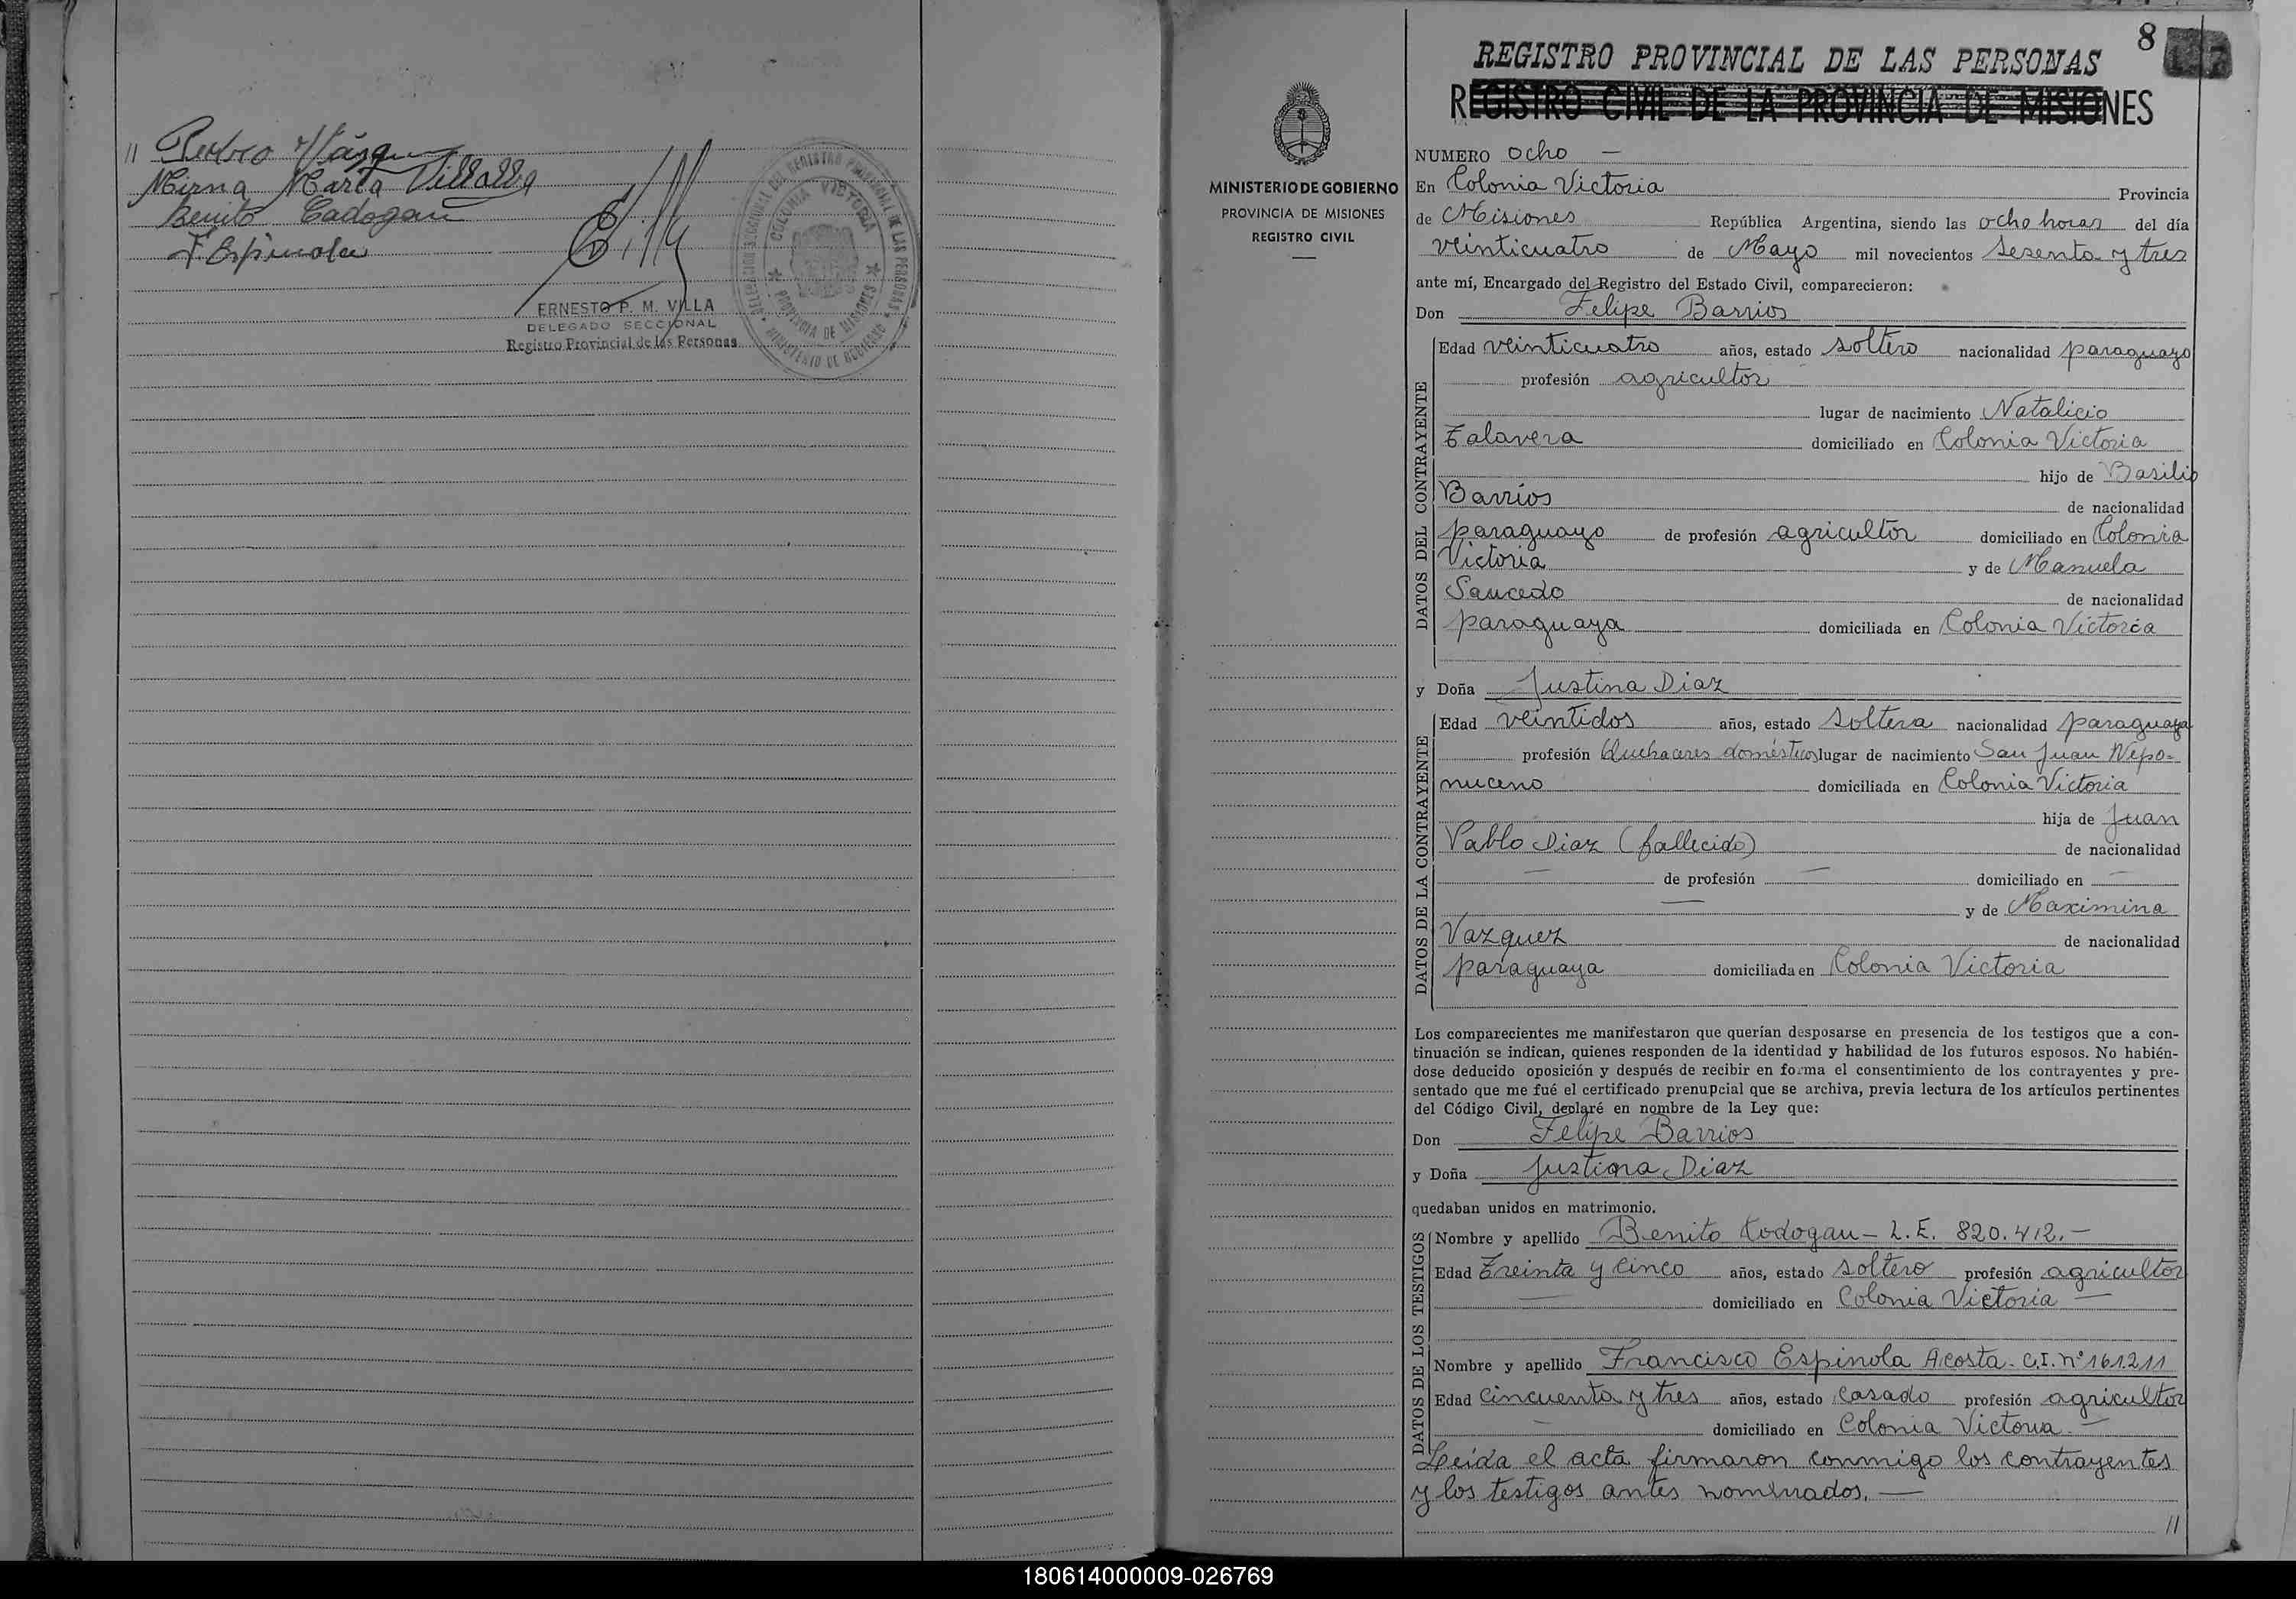 // Pedro Vásqu
Mirna María Villalba
Benito Cadogan
F Espinola
ERNESTO P. M. VILLA
DELEGADO SECCIONAL
Registro Provincial de las Personas
COLONIA VICTORIA
PROVINCIA DE MISIONES
MINISTERIO DE GOBIERNO
8
REGISTRO PROVINCIAL DE LAS PERSONAS
REGISTRO CIVIL DE LA PROVINCIA DE MISIONES
MINISTERIO DE GOBIERNO
PROVINCIA DE MISIONES
REGISTRO CIVIL
NUMERO ocho —
En Colonia Victoria Provincia
de Misiones República Argentina, siendo las ocho horas del día
veinticuatro de Mayo mil novecientos sesenta y tres
ante mí, Encargado del Registro del Estado Civil, comparecieron:
Don Felipe Barrios
DATOS DEL CONTRAYENTE
Edad veinticuatro años, estado soltero nacionalidad paraguayo
profesión agricultor
lugar de nacimiento Natalicio
Talavera domiciliado en Colonia Victoria
hijo de Basilio
Barrios de nacionalidad
paraguayo de profesión agricultor domiciliado en Colonia
Victoria y de Manuela
Saucedo de nacionalidad
paraguaya domiciliada en Colonia Victoria
y Doña Justina Diaz
DATOS DE LA CONTRAYENTE
Edad veintidos años, estado soltera nacionalidad paraguaya
profesión Quehaceres domésticos lugar de nacimiento San Juan Nepo-
muceno domiciliada en Colonia Victoria
hija de Juan
Pablo Diaz (fallecido) de nacionalidad
— de profesión — domiciliado en —
— y de Maximina
Vazquez de nacionalidad
paraguaya domiciliada en Colonia Victoria
Los comparecientes me manifestaron que querían desposarse en presencia de los testigos que a con-
tinuación se indican, quienes responden de la identidad y habilidad de los futuros esposos. No habién-
dose deducido oposición y después de recibir en forma el consentimiento de los contrayentes y pre-
sentado que me fué el certificado prenupcial que se archiva, previa lectura de los artículos pertinentes
del Código Civil, declaré en nombre de la Ley que:
Don Felipe Barrios
y Doña Justina Diaz
quedaban unidos en matrimonio.
DATOS DE LOS TESTIGOS
Nombre y apellido Benito Kodogau - L.E. 820.412.-
Edad Treinta y cinco años, estado soltero profesión agricultor
— domiciliado en Colonia Victoria —
Nombre y apellido Francisco Espinola Acosta - C.I. nº 161.211
Edad cincuenta y tres años, estado casado profesión agricultor
— domiciliado en Colonia Victoria —
Leída el acta firmaron conmigo los contrayentes
y los testigos antes nominados. —
//
180614000009-026769